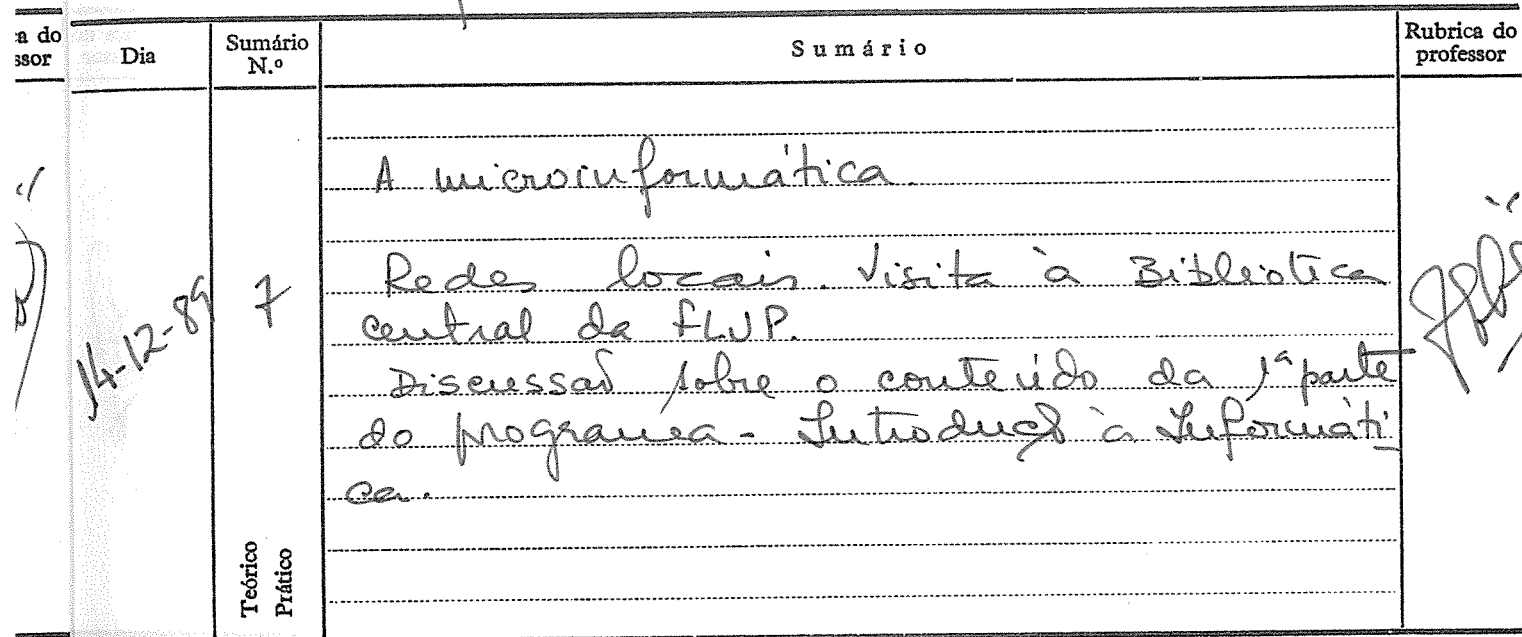 a do
ssor
Dia
Sumário
N.º
Sumário
Rubrica do
professor
14-12-89
7
A microinformática.
Redes locais. Visita à Biblioteca
central da FLUP.
Discussão sobre o conteúdo da 1ª parte
do programa - Introdução à Informáti
ca.
Teórico
Prático